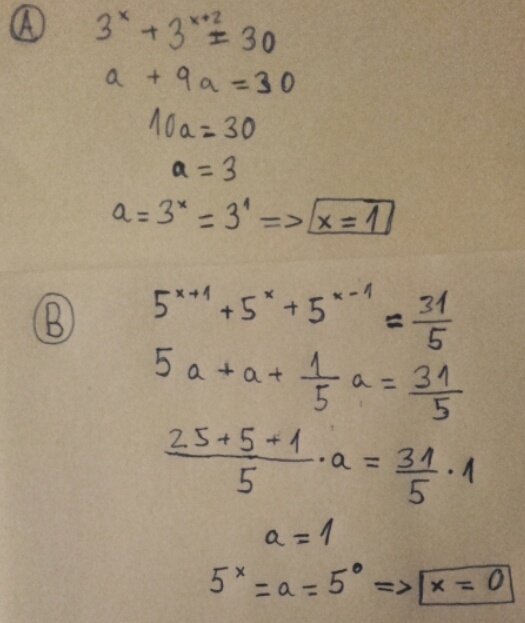 Ⓐ 3ˣ + 3ˣ⁺² = 30
a + 9a = 30
10a = 30
a = 3
a = 3ˣ = 3¹ => x = 1
Ⓑ 5ˣ⁺¹ + 5ˣ + 5ˣ⁻¹ = 31/5
5a + a + 1/5 a = 31/5
(25+5+1)/5 · a = 31/5 · 1
a = 1
5ˣ = a = 5⁰ => x = 0